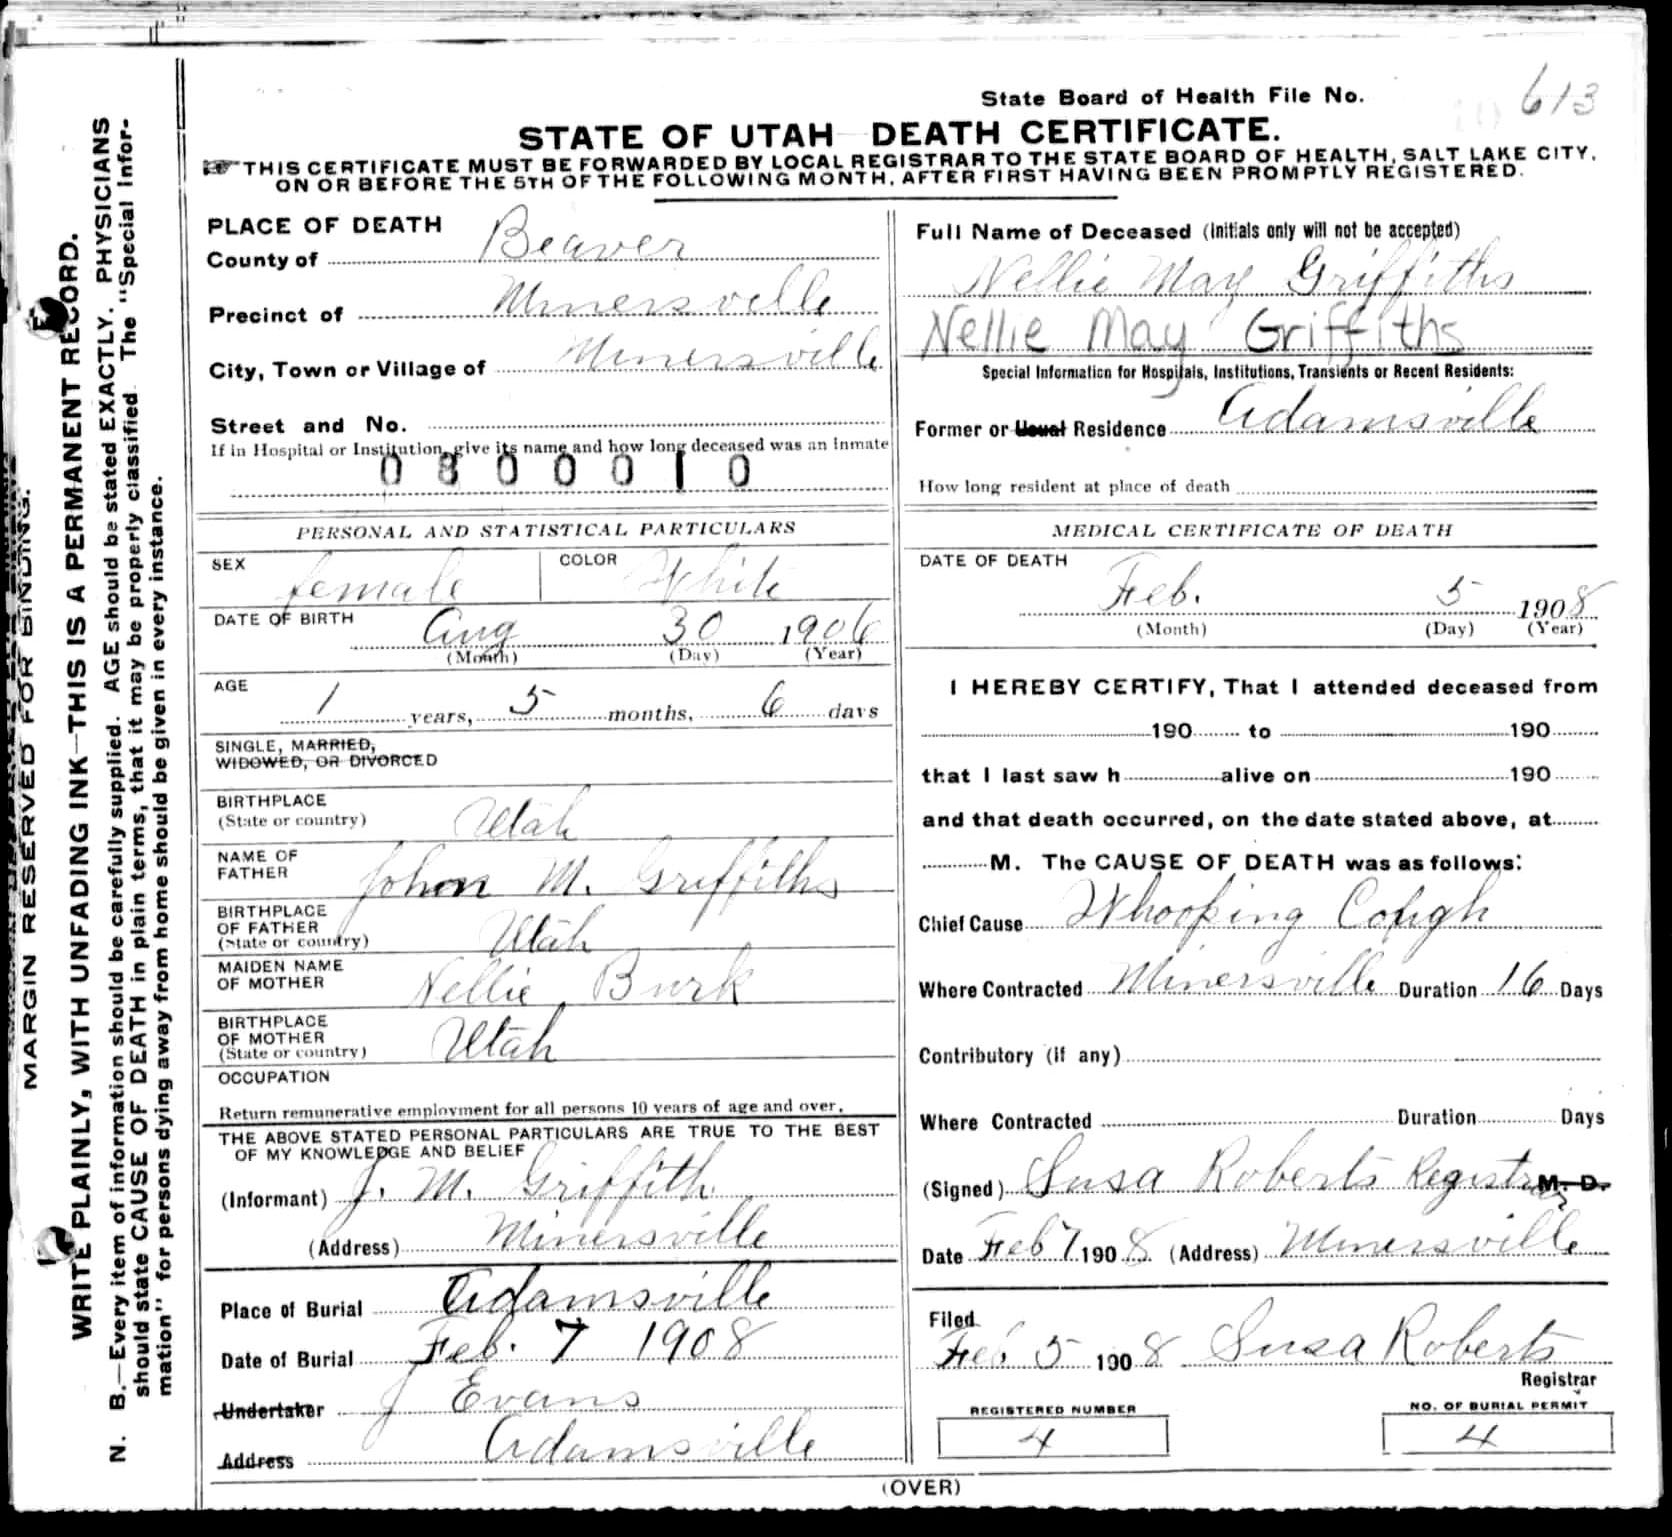 State Board of Health File No. 613
STATE OF UTAH DEATH CERTIFICATE.
THIS CERTIFICATE MUST BE FORWARDED BY LOCAL REGISTRAR TO THE STATE BOARD OF HEALTH, SALT LAKE CITY,
ON OR BEFORE THE 5TH OF THE FOLLOWING MONTH, AFTER FIRST HAVING BEEN PROMPTLY REGISTERED.
MARGIN RESERVED FOR BINDING.
WRITE PLAINLY, WITH UNFADING INK—THIS IS A PERMANENT RECORD.
N. B.—Every item of information should be carefully supplied. AGE should be stated EXACTLY. PHYSICIANS
should state CAUSE OF DEATH in plain terms, that it may be properly classified. The "Special Infor-
mation" for persons dying away from home should be given in every instance.
PLACE OF DEATH
County of Beaver
Precinct of Minersville
City, Town or Village of Minersville
Street and No.
If in Hospital or Institution, give its name and how long deceased was an inmate
0800010
PERSONAL AND STATISTICAL PARTICULARS
SEX female COLOR White
DATE OF BIRTH Aug 30 1906
(Month) (Day) (Year)
AGE 1 years, 5 months, 6 days
SINGLE, MARRIED,
WIDOWED, OR DIVORCED
BIRTHPLACE
(State or country) Utah
NAME OF
FATHER John M. Griffiths
BIRTHPLACE
OF FATHER
(State or country) Utah
MAIDEN NAME
OF MOTHER Nellie Burk
BIRTHPLACE
OF MOTHER
(State or country) Utah
OCCUPATION
Return remunerative employment for all persons 10 years of age and over.
THE ABOVE STATED PERSONAL PARTICULARS ARE TRUE TO THE BEST
OF MY KNOWLEDGE AND BELIEF
(Informant) J. M. Griffith
(Address) Minersville
Place of Burial Adamsville
Date of Burial Feb. 7 1908
Undertaker J Evans
Address Adamsville
Full Name of Deceased (Initials only will not be accepted)
Nellie May Griffiths
Nellie May Griffiths
Special Information for Hospitals, Institutions, Transients or Recent Residents:
Former or Usual Residence Adamsville
How long resident at place of death
MEDICAL CERTIFICATE OF DEATH
DATE OF DEATH
Feb. 5 1908
(Month) (Day) (Year)
I HEREBY CERTIFY, That I attended deceased from
190 to 190
that I last saw h alive on 190
and that death occurred, on the date stated above, at
M. The CAUSE OF DEATH was as follows:
Chief Cause Whooping Cough
Where Contracted Minersville Duration 16 Days
Contributory (if any)
Where Contracted Duration Days
(Signed) Susa Roberts Registrar M. D.
Date Feb 7 1908 (Address) Minersville
Filed
Feb 5 1908 Susa Roberts
Registrar
REGISTERED NUMBER NO. OF BURIAL PERMIT
4 4
(OVER)